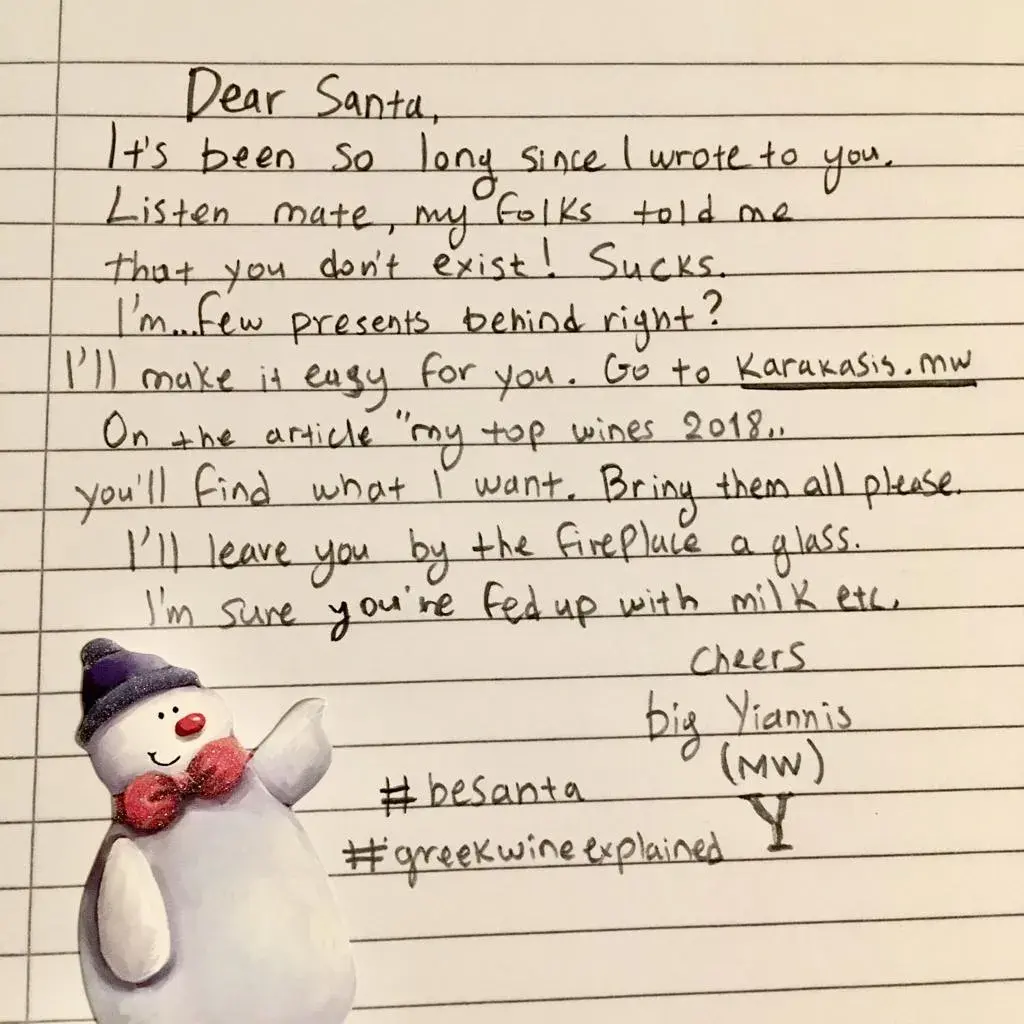 Dear Santa,
It's been so long since I wrote to you.
Listen mate, my folks told me
that you don't exist! Sucks.
I'm...few presents behind right?
I'll make it easy for you. Go to Karakasis.mw
On the article "my top wines 2018„
you'll find what I want. Bring them all please.
I'll leave you by the fireplace a glass.
I'm sure you're fed up with milk etc.
Cheers
big Yiannis
(MW)
Y
#besanta
#greekwineexplained